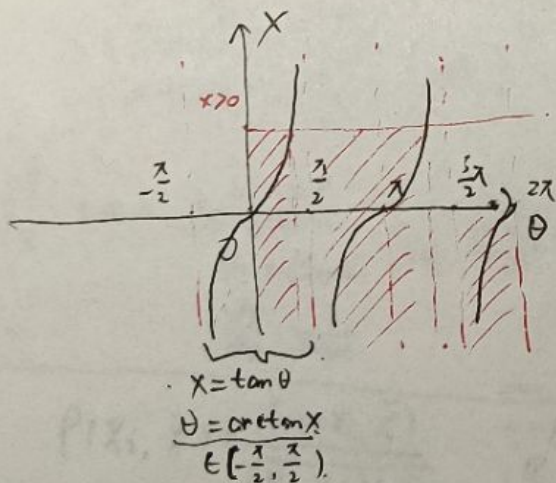 X
x>0
-π/2 π/2 π 3/2π 2π
0 θ
x=tanθ
θ=arctanx
∈(-π/2,π/2).